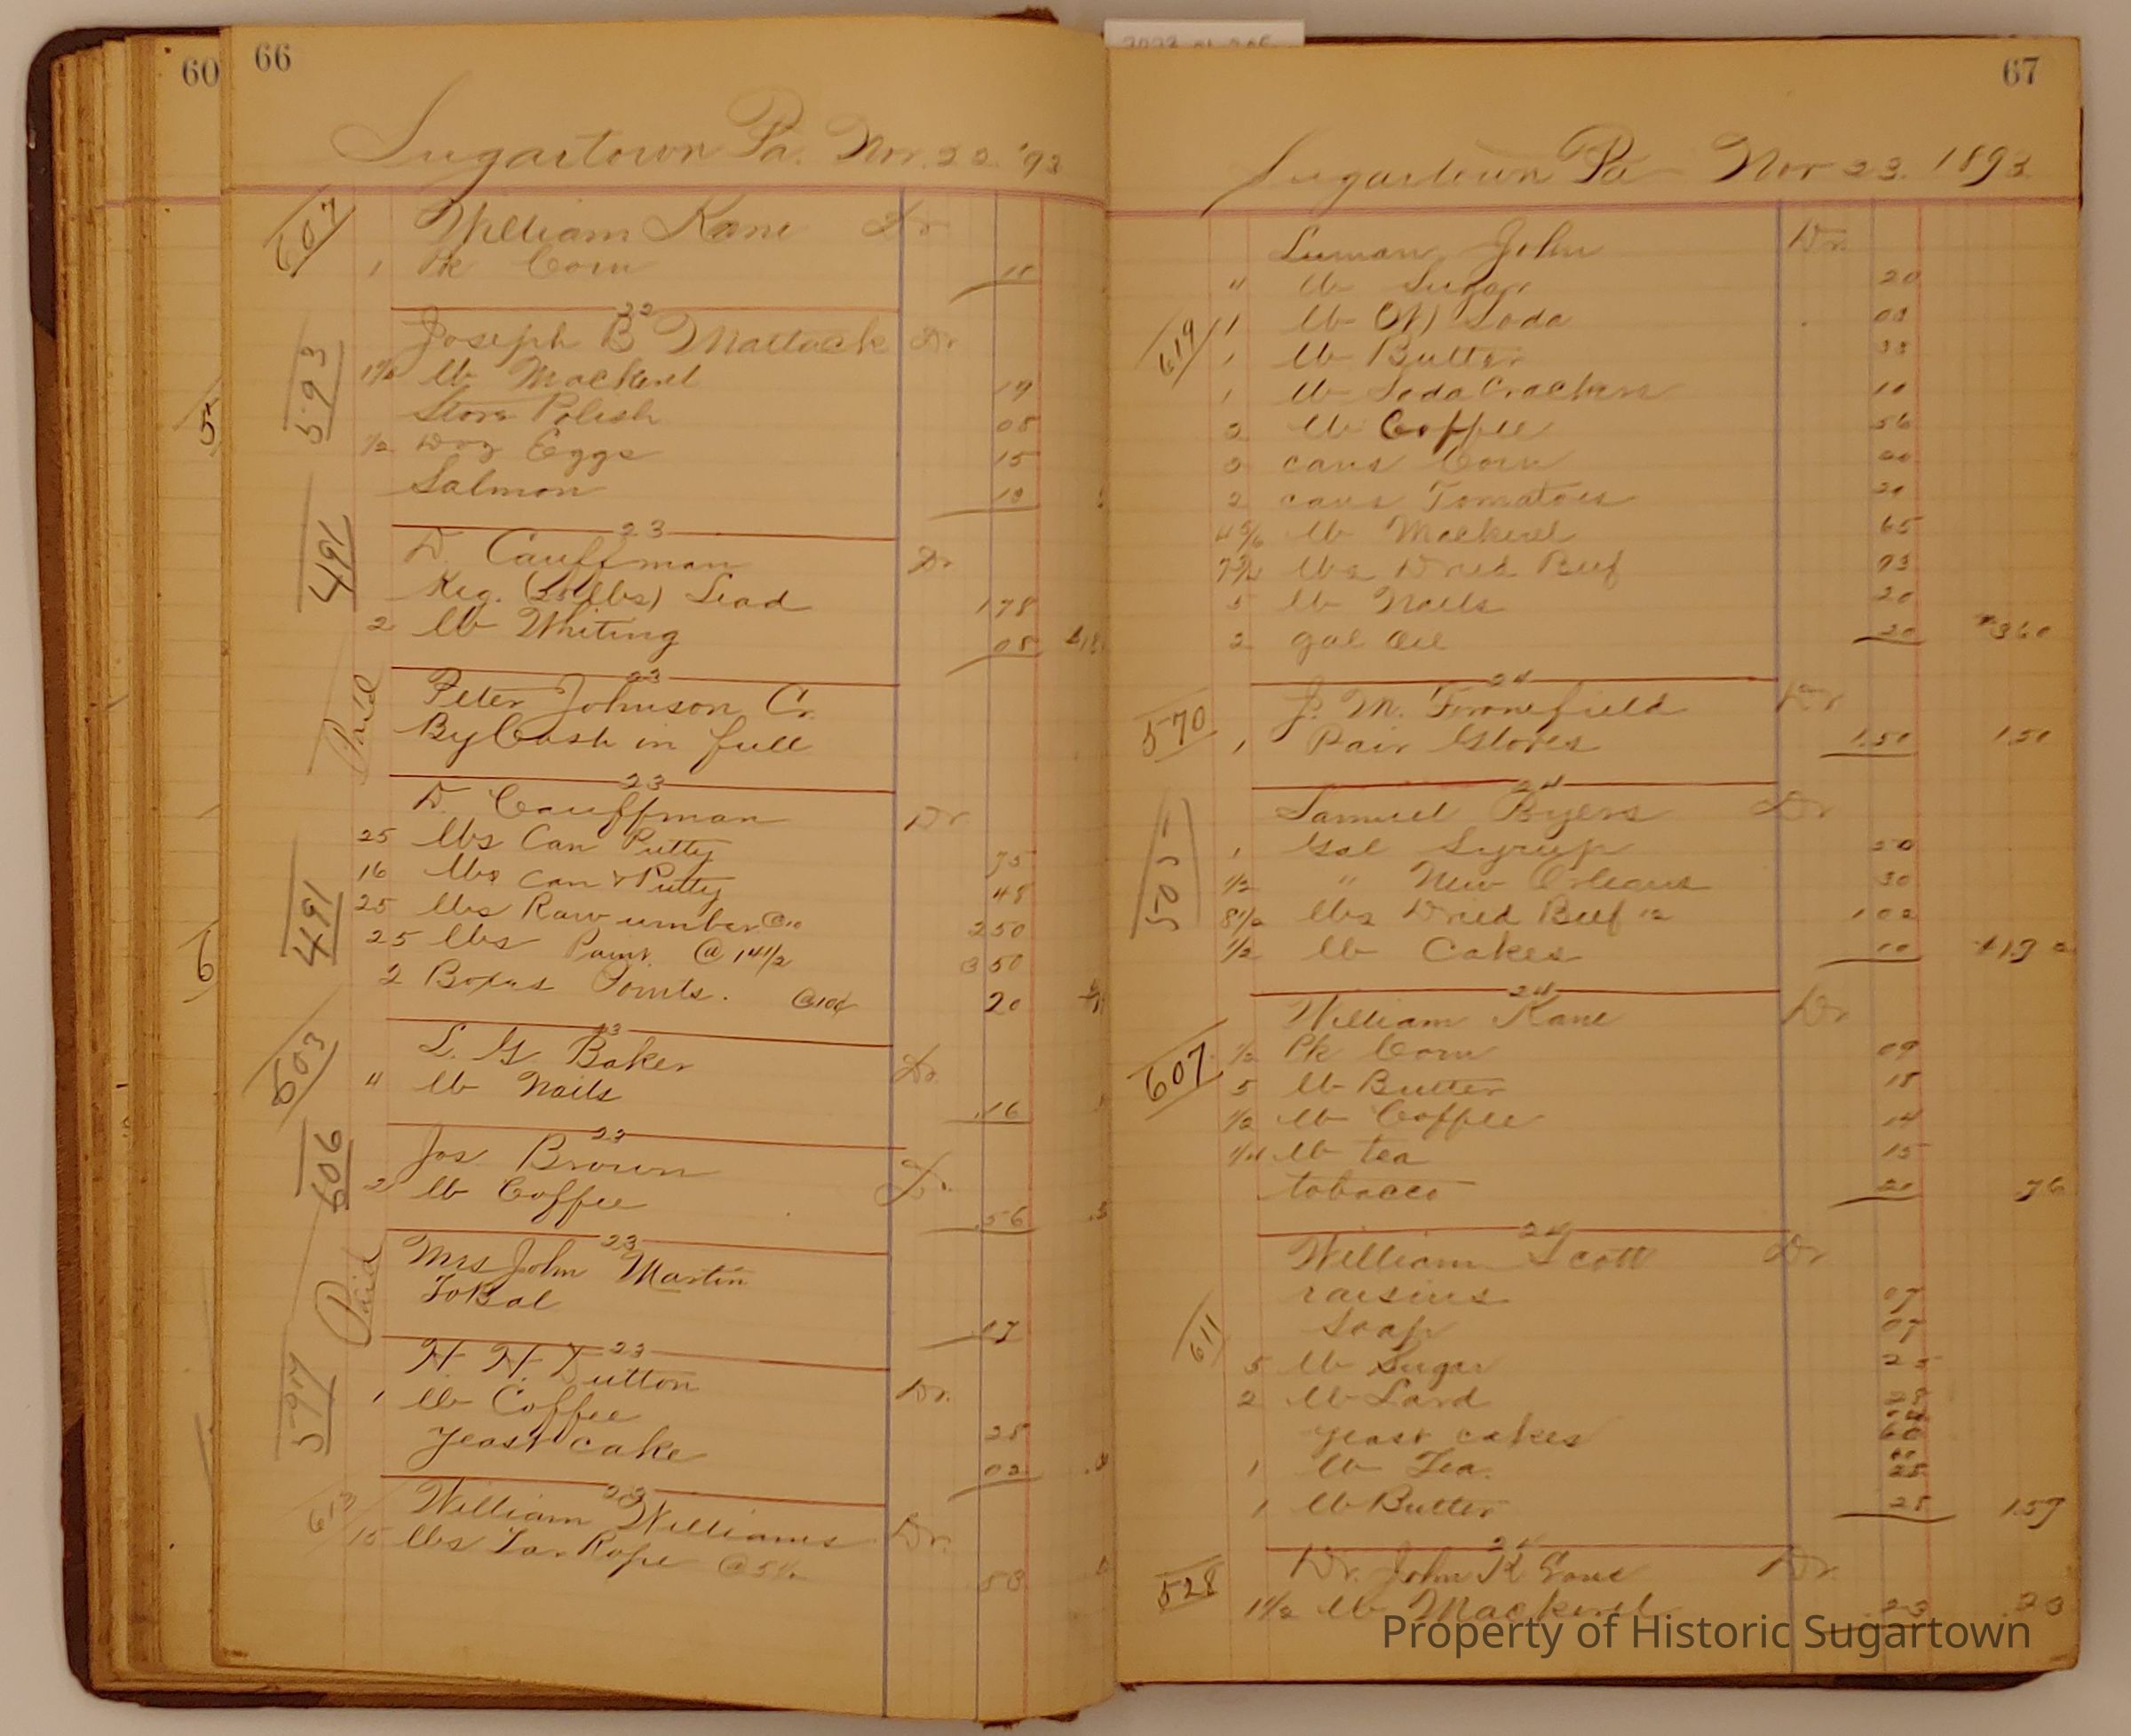 60
66
Sugartown Pa. Nov. 22. '93
607
William Kane Dr
1 Pk Corn
22
593
Joseph B Matlack Dr.
1½ lb Mackerel 19
Stove Polish 05
½ Doz Eggs 15
Salmon
23
491
D. Cauffman Dr
Keg. (25 lbs) Lead 178
2 lb Whiting 08
23
Paid
Peter Johnson Cr.
By Cash in full
23
491
D. Cauffman Dr
25 lbs Can Putty 75
16 lbs Can & Putty 48
25 lbs Raw umber @10 250
25 lbs Paint @ 14½ 350
2 Boxes Points. @10¢ 20
23
503
L. G. Baker Dr.
4 lb Nails .16
23
606
Jos. Brown Dr.
2 lb Coffee .56
23
Paid
Mrs John Martin
To Bal 17
23
597
H. H. Dutton Dr.
1 lb Coffee 28
Yeast cake 02
23
613
William Williams Dr.
15 lbs Tar Rope 83
67
Sugartown Pa Nov 23. 1893
Luman, John Dr.
4 lb Sugar 20
619
1 lb Soda
1 lb Butter 33
1 lb Soda Crackers 10
2 lb Coffee 56
2 cans Corn
2 cans Tomatoes
lb Mackerel 65
7¾ lbs Dried Beef 93
5 lb Nails 20
2 gal Oil 20 360
24
570
J. M. Fronefield Dr
1 Pair Gloves 1.50 1.50
24
505
Samuel Byers Dr
1 Gal Syrup 50
½ " New Orleans 30
8½ lbs Dried Beef 12 102
½ lb Cakes 10
24
607
William Kane Dr
½ Pk Corn 09
5 lb Butter 18
½ lb Coffee 14
¼ lb tea 15
tobacco 20 .76
24
611
William Scott Dr
raisins 07
Soap 07
5 lb Sugar 25
2 lb Lard
yeast cakes
1 lb Tea.
1 lb Butter 1.57
24
528
Dr. John K Evans Dr.
1½ lb Mackerel .23 .23
Property of Historic Sugartown